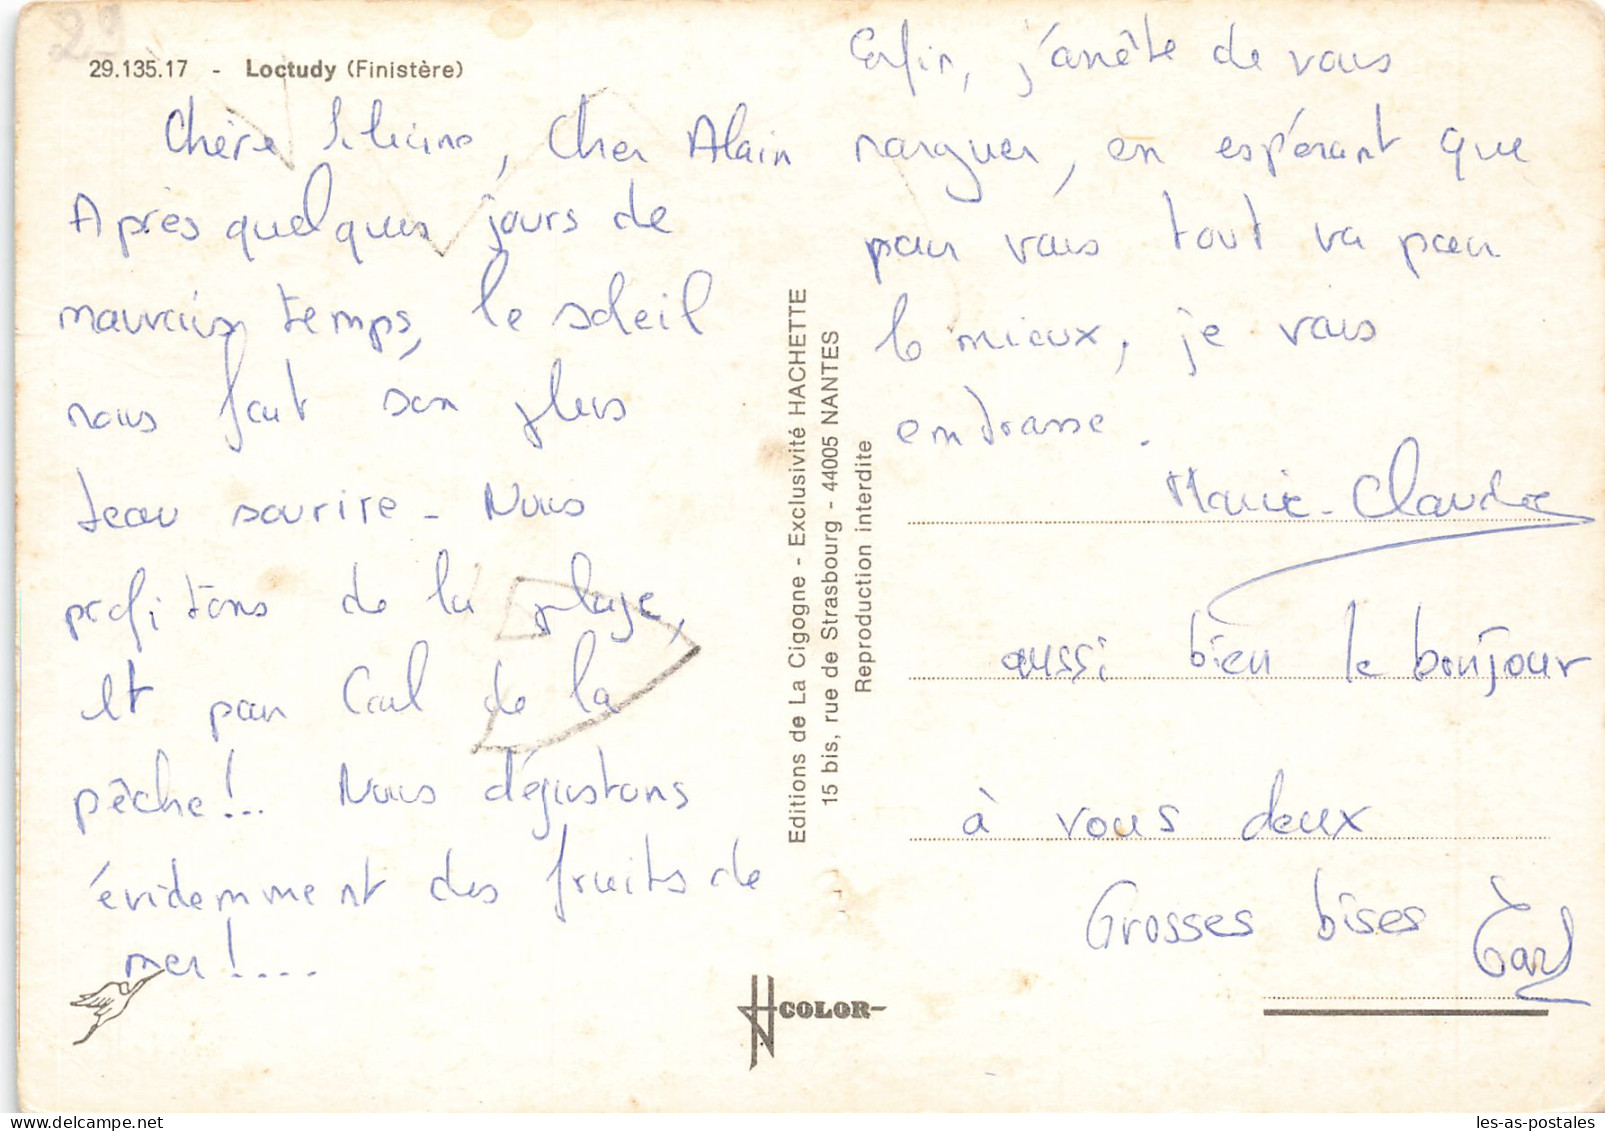 29
29.135.17 - Loctudy (Finistère)
Chère Liliane, Cher Alain
Après quelques jours de
mauvais temps, le soleil
nous fait son plus
beau sourire - Nous
profitons de la plage,
et par Cal de la
pêche!.. Nous dégustons
évidemment des fruits de
mer!....
Editions de La Cigogne - Exclusivité HACHETTE
15 bis, rue de Strasbourg - 44005 NANTES
Reproduction interdite
COLOR
Enfin, j'arrête de vous
narguer, en espérant que
pour vous tout va pour
le mieux, je vous
embrasse.
Marie-Claude
aussi bien le bonjour
à vous deux
Grosses bises
les-as-postales